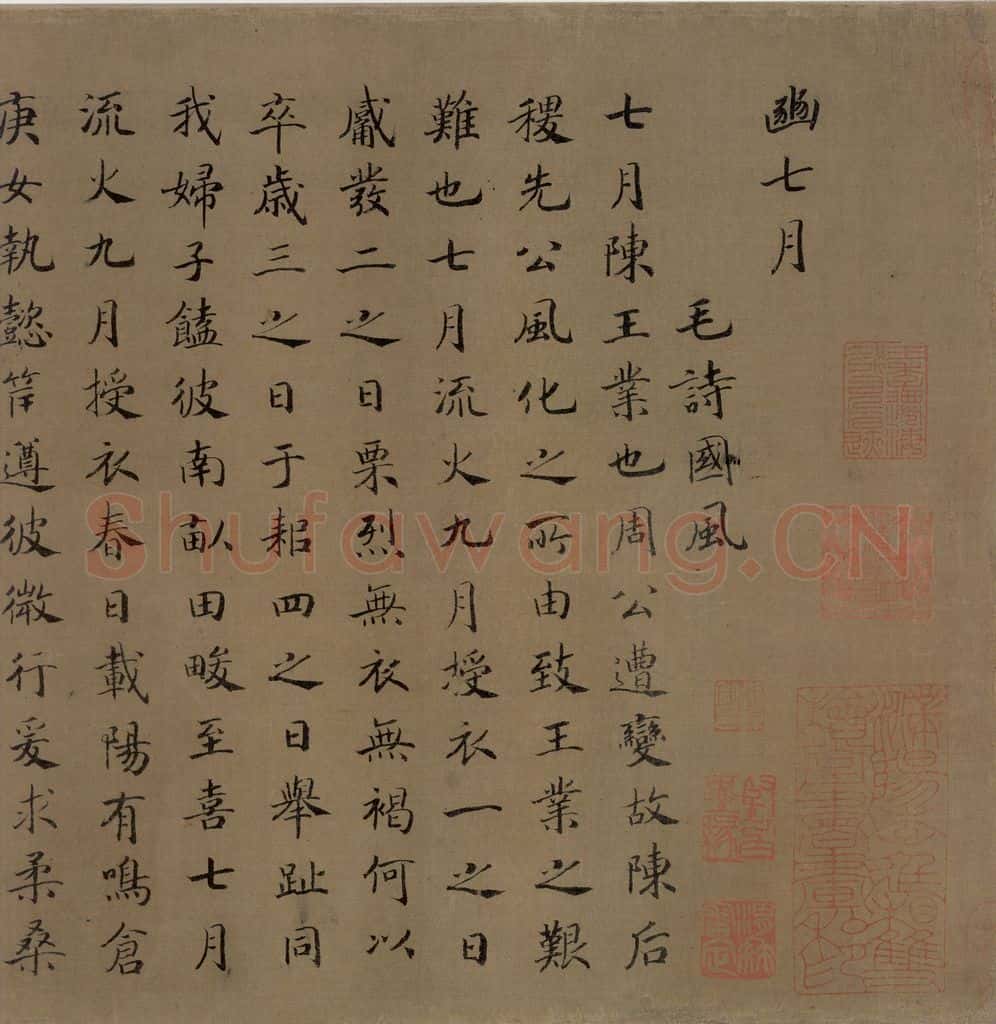 豳七月
毛詩國風
七月陳王業也周公遭變故陳后
稷先公風化之所由致王業之艱
難也七月流火九月授衣一之日
觱發二之日栗烈無衣無褐何以
卒歲三之日于耜四之日舉趾同
我婦子饁彼南畝田畯至喜七月
流火九月授衣春日載陽有鳴倉
庚女執懿筐遵彼微行爰求柔桑
Shufawang.CN